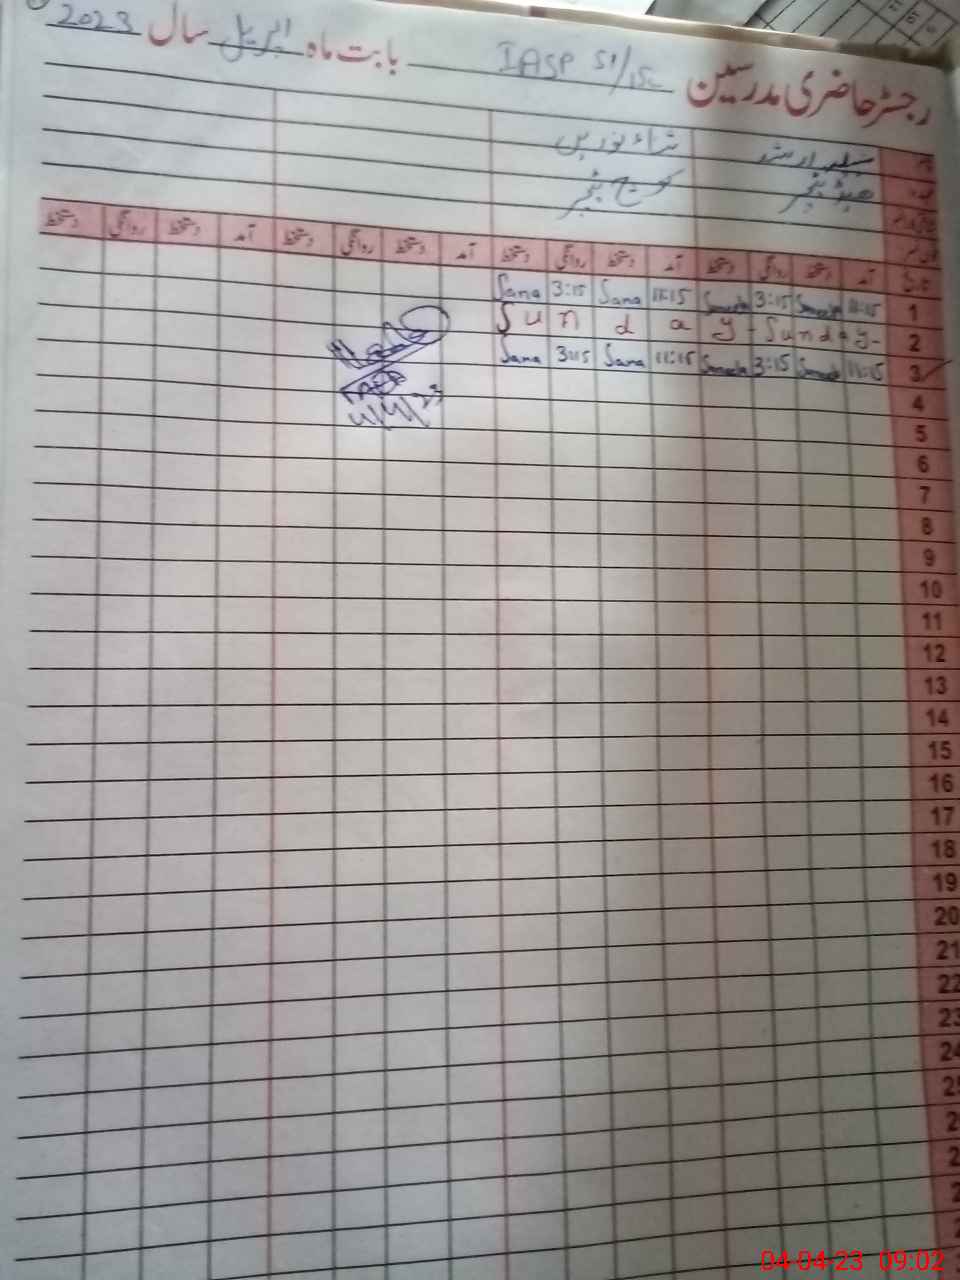 رجسٹر حاضری مدرسین IASP 51/15L بابت ماہ اپریل سال 2023
نام ارشد ثناء نورین
عہدہ ہیڈ ٹیچر ٹیچر
تاریخ آمد دستخط روانگی دستخط آمد دستخط روانگی دستخط آمد دستخط روانگی دستخط آمد دستخط روانگی دستخط
1 11:15 3:15 11:15 Sana 3:15 Sana
2 Sunday - Sunday
3 11:15 3:15 11:15 Sana 3:15 Sana
4
4/4/23
5
6
7
8
9
10
11
12
13
14
15
16
17
18
19
20
21
22
23
24
04-04-23 09:02